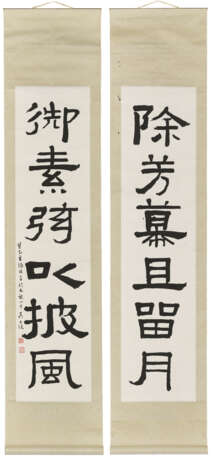 除芳幕且留月
御素弦以披風